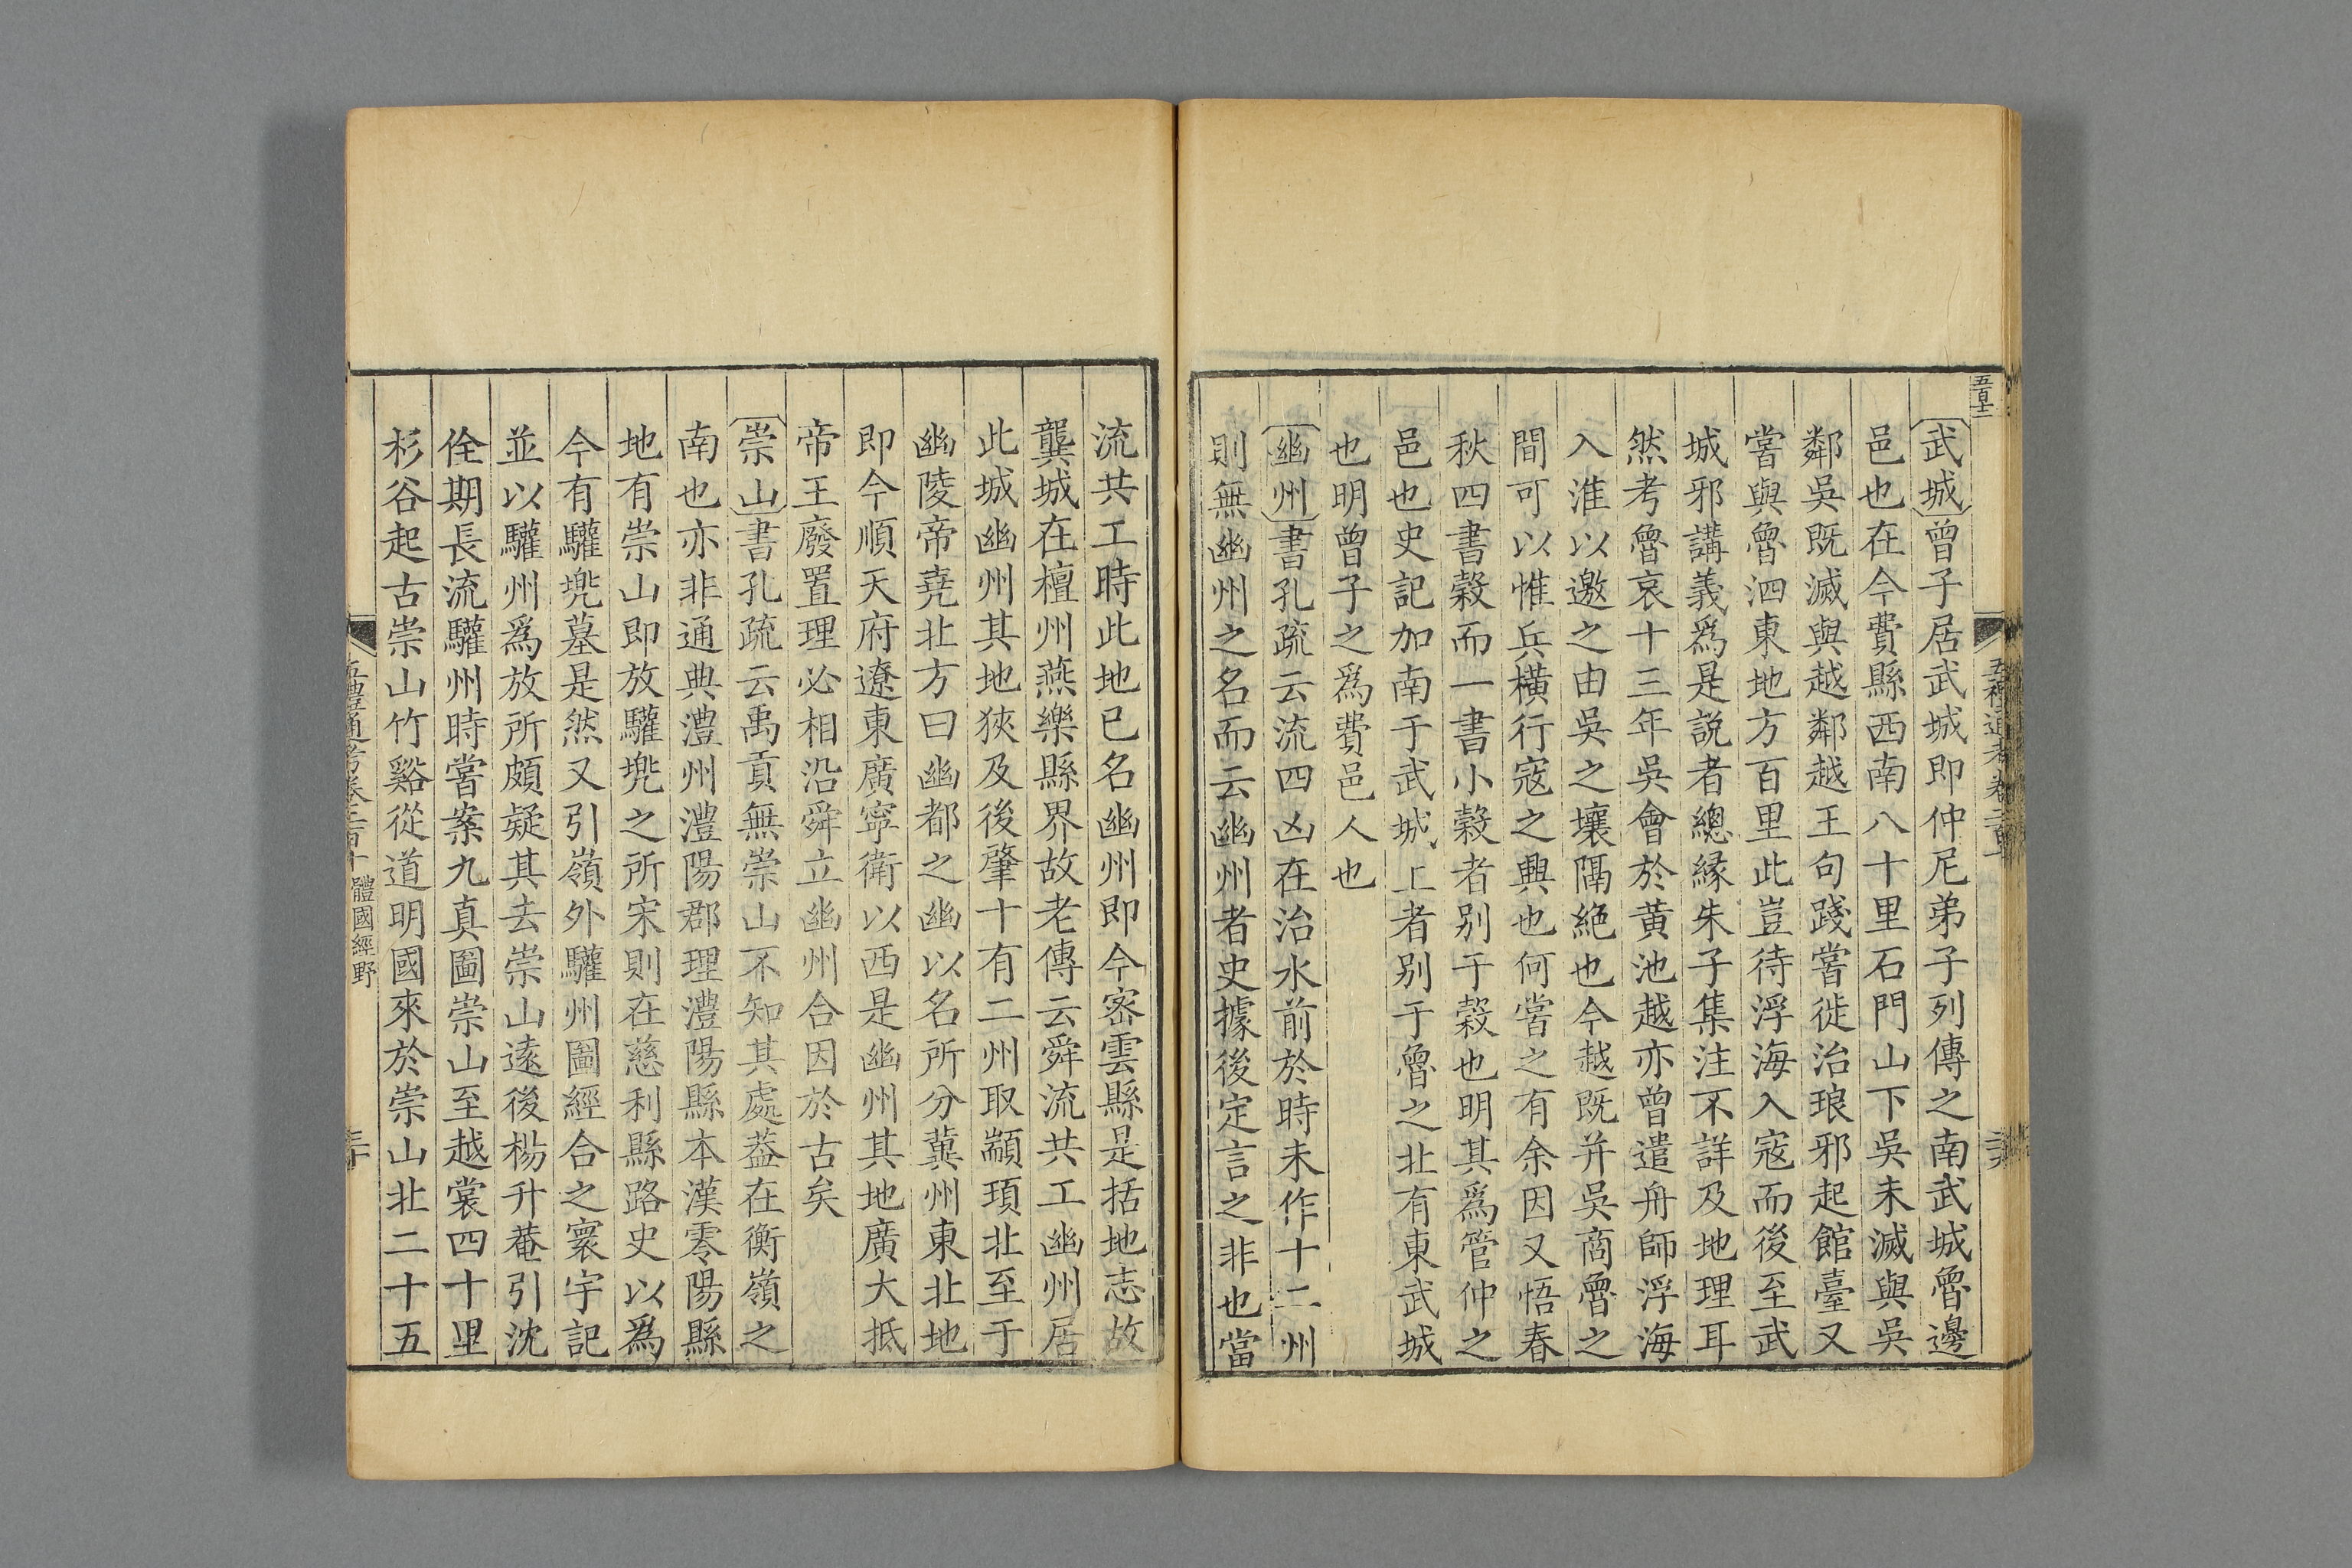 五百十二
武城曾子居武城即仲尼弟子列傳之南武城魯邊
邑也在今費縣西南八十里石門山下吳未滅與吳
鄰吳既滅與越鄰越王句踐嘗徙治琅邪起館臺又
嘗與魯泗東地方百里此豈待浮海入寇而後至武
城邪講義爲是説者總緣朱子集注不詳及地理耳
然考魯哀十三年吳會於黄池越亦曾遣舟師浮海
入淮以邀之由吳之壤隔絶也今越既并吳商魯之
間可以惟兵橫行寇之興也何嘗之有余因又悟春
秋四書穀而一書小穀者别于穀也明其爲管仲之
邑也史記加南于武城上者别于魯之北有東武城
也明曾子之爲費邑人也
幽州書孔疏云流四凶在治水前於時未作十二州
則無幽州之名而云幽州者史據後定言之非也當
流共工時此地已名幽州即今密雲縣是括地志故
龔城在檀州燕樂縣界故老傳云舜流共工幽州居
此城幽州其地狹及後肇十有二州取顓頊北至于
幽陵帝堯北方曰幽都之幽以名所分冀州東北地
即今順天府遼東廣寧衛以西是幽州其地廣大抵
帝王廢置理必相沿舜立幽州合因於古矣
崇山書孔疏云禹貢無崇山不知其處葢在衡嶺之
南也亦非通典澧州澧陽郡理澧陽縣本漢零陽縣
地有崇山即放驩兜之所宋則在慈利縣路史以為
今有驩兜墓是然又引嶺外驩州圖經合之寰宇記
並以驩州爲放所頗疑其去崇山遠後楊升菴引沈
佺期長流驩州時嘗案九真圖崇山至越裳四十里
杉谷起古崇山竹谿從道明國來於崇山北二十五
五禮通考卷二百十 體國經野